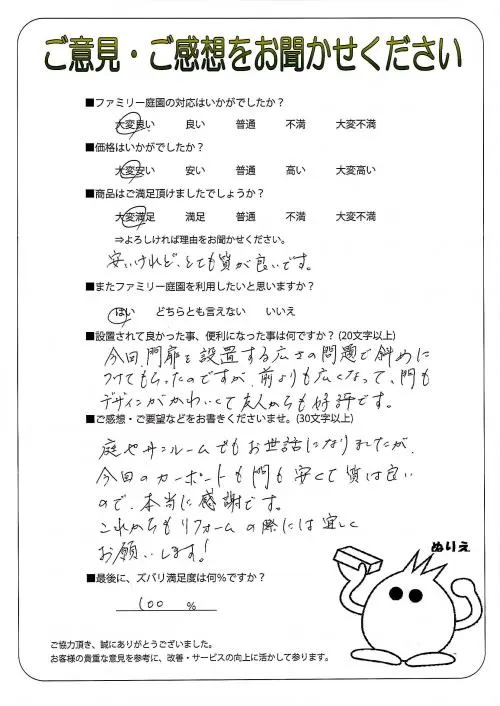 ご意見・ご感想をお聞かせください
■ファミリー庭園の対応はいかがでしたか?
大変良い 良い 普通 不満 大変不満
■価格はいかがでしたか?
大変安い 安い 普通 高い 大変高い
■商品はご満足頂けましたでしょうか?
大変満足 満足 普通 不満 大変不満
⇒よろしければ理由をお聞かせください。
安いけれど、とても質が良いです。
■またファミリー庭園を利用したいと思いますか?
はい どちらとも言えない いいえ
■設置されて良かった事、便利になった事は何ですか?(20文字以上)
今回、門扉を設置する広さの問題で斜めに
つけてもらったのですが、前よりも広くなって、門も
デザインがかわいくて友人からも好評です。
■ご感想・ご要望などをお書きくださいませ。(30文字以上)
庭やサンルームでもお世話になりましたが、
今回のカーポートも門も安くて質は良い
ので、本当に感謝です。
これからもリフォームの際には宜しく
お願いします!
ぬりえ
■最後に、ズバリ満足度は何%ですか?
100 %
ご協力頂き、誠にありがとうございました。
お客様の貴重な意見を参考に、改善・サービスの向上に活かして参ります。